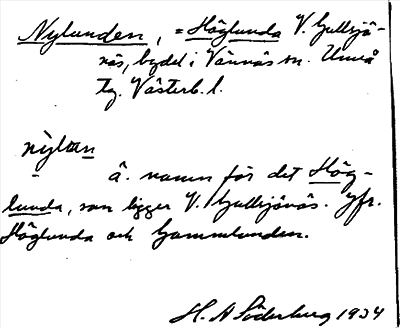 Nylunden, = Höglunda V. Gullsjö-
näs, bydel i Vännäs sn. Umeå
tg. Västerb. l.
nỳlan
å. namn för det Hög-
lunda, som ligger V. Gullsjönäs. Jfr.
Höglunda och Gammlunden.
H. A Söderberg 1934